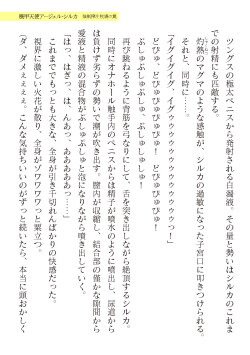 機甲天使アージェル・シルカ
ツングスの極太ペニスから発射される白濁液、その量と勢いはシルカのこれま
での射精にも匹敵。
灼熱のマグマのような感触が、シルカの過敏になった子宮口に叩きつけられる。
それと同時に……。
「イグイグイグ、イグウゥウゥウゥウゥっ！」
どびゅ、どびゅうぅ！　どびゅどびゅびゅ！
ぷしゅ、ぷしゅしゅ！　ぶしゅぶしゅしゅ！
再び跳ねるように背筋を弓なりにして、舌を突き出しながら絶頂するシルカ。
同時にオナホール触手内のペニスからは精子が噴水のように噴出し、尿道から
は負けず劣らずの勢いで潮が吹き出す。膣内が収縮し、結合部の僅かな隙間から
愛液と精液の混合物がぶしゅぶしゅと泡になりながら噴き出していく。
「はっ、はぎっ、は、んっ、あぁあぁあぁっ……」
これまででもっとも大きな、全身が引き千切れんばかりの快感だった。
視界に激しい火花が散り、全身がゾワゾワワっと粟立つ。
（ダ、ダメぇぇぇぇ、こんな気持ちいいのがずっと続いたら、本当に頭おかしく